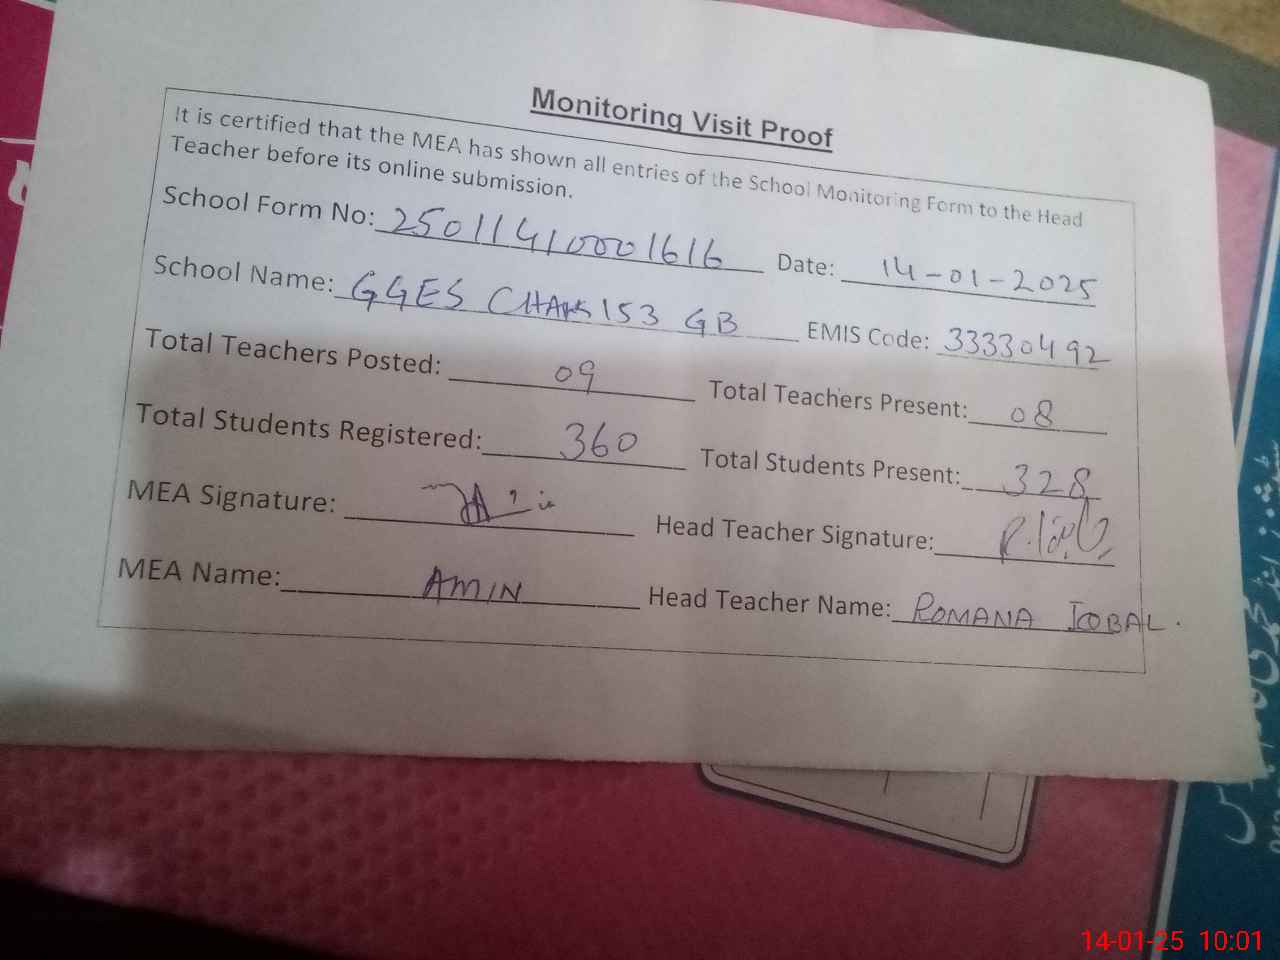 Monitoring Visit Proof
It is certified that the MEA has shown all entries of the School Monitoring Form to the Head
Teacher before its online submission.
School Form No: 25011410001616 Date: 14-01-2025
School Name: GGES CHAK 153 GB EMIS Code: 33330492
Total Teachers Posted: 09 Total Teachers Present: 08
Total Students Registered: 360 Total Students Present: 328
MEA Signature: Head Teacher Signature:
MEA Name: AMIN Head Teacher Name: ROMANA IQBAL.
14-01-25 10:01